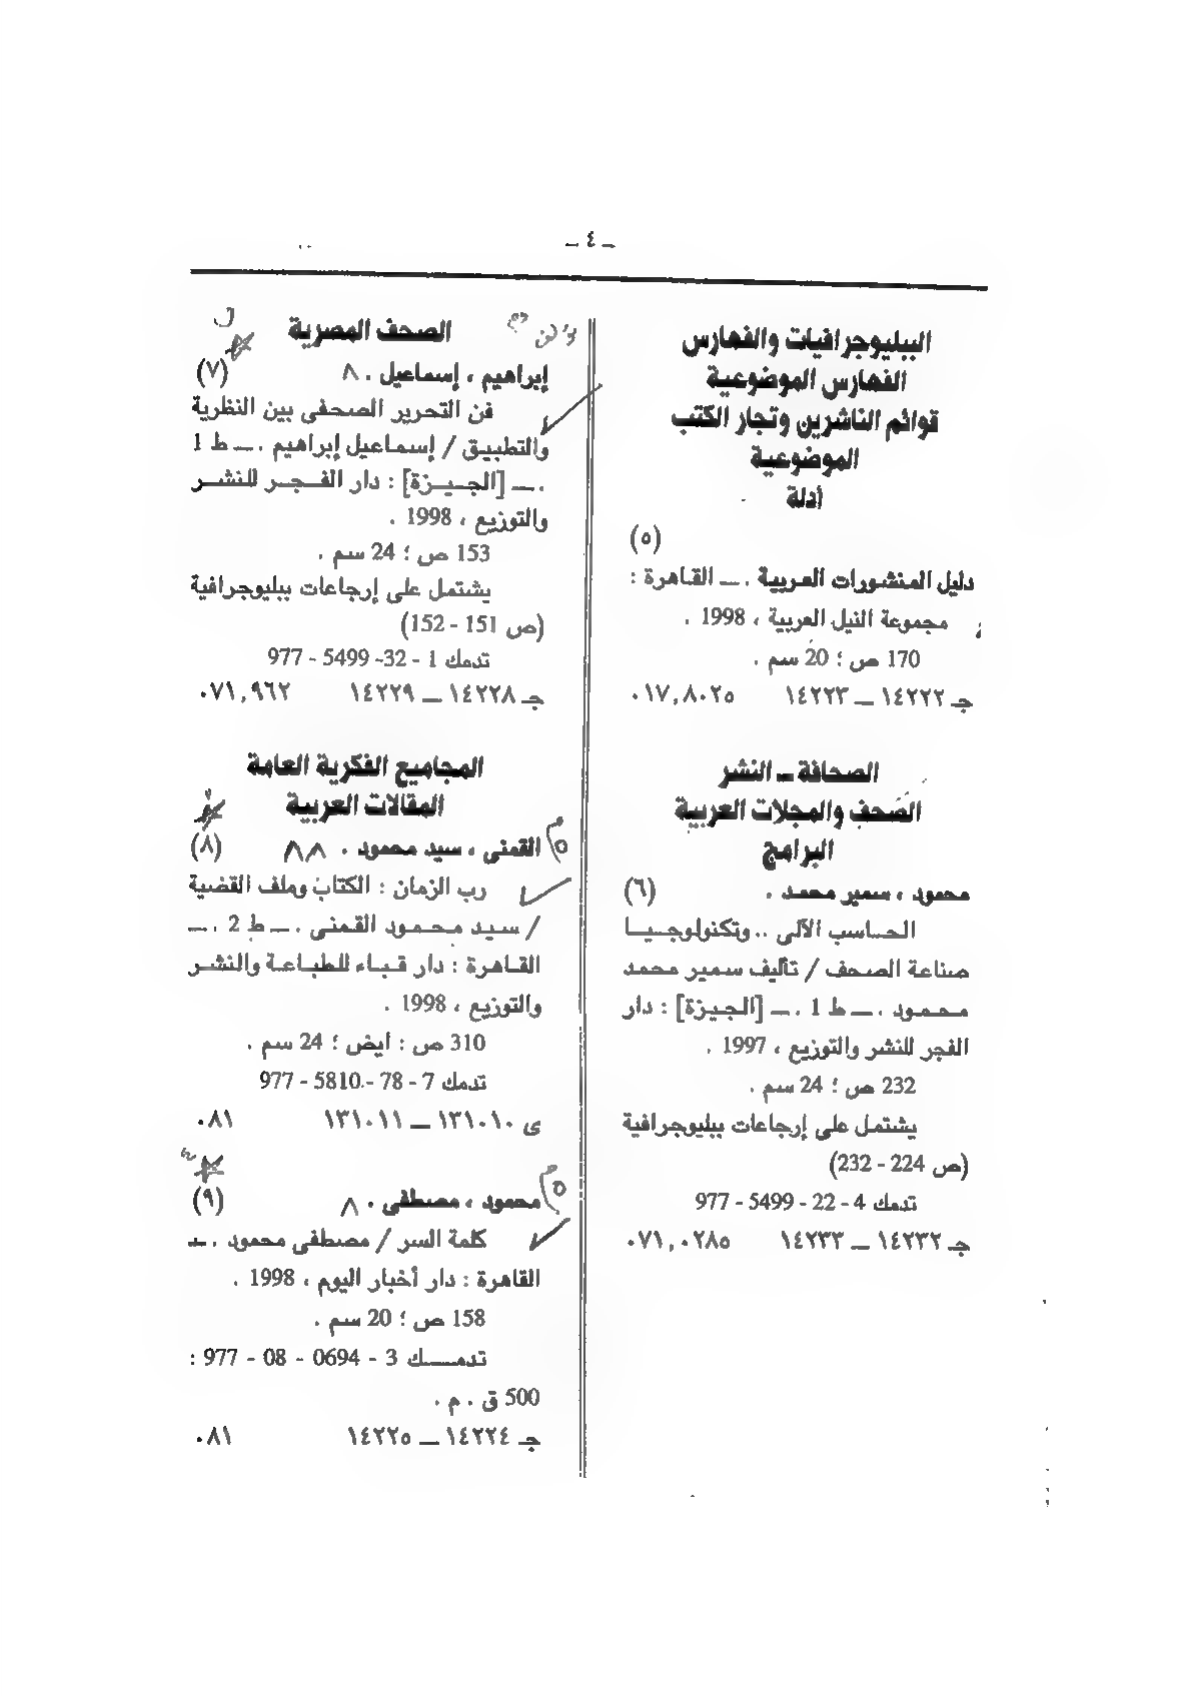 ـ ٤ ـ
الببليوجرافيات والفهارس
الفهارس الموضوعية
قوائم الناشرين وتجار الكتب
الموضوعية
أدلة
(٥)
دليل المنشورات العربية . ـ القاهرة :
مجموعة النيل العربية ، 1998 .
170 ص ؛ 20 سم .
جـ ١٤٢٢٢ ـ ١٤٢٢٣ ٠١٧,٨٠٢٥
الصحافة ـ النشر
الصحف والمجلات العربية
البرامج
محمود ، سمير محمد . (٦)
الحاسب الآلى .. وتكنولوجيا
صناعة الصحف / تأليف سمير محمد
محمود . ـ ط 1 . ـ [الجيزة] : دار
الفجر للنشر والتوزيع ، 1997 .
232 ص ؛ 24 سم .
يشتمل على إرجاعات ببليوجرافية
(ص 224 - 232)
تدمك 4 - 22 - 5499 - 977
جـ ١٤٢٣٢ ـ ١٤٢٣٣ ٠٧١,٠٢٨٥
الصحف المصرية
إبراهيم ، إسماعيل . ٨ (٧)
فن التحرير الصحفى بين النظرية
والتطبيق / إسماعيل إبراهيم . ـ ط 1
. ـ [الجيزة] : دار الفجر للنشر
والتوزيع ، 1998 .
153 ص ؛ 24 سم .
يشتمل على إرجاعات ببليوجرافية
(ص 151 - 152)
تدمك 1 - 32- 5499 - 977
جـ ١٤٢٢٨ ـ ١٤٢٢٩ ٠٧١,٩٦٢
المجاميع الفكرية العامة
المقالات العربية
القمنى ، سيد محمود . ٨٨ (٨)
رب الزمان : الكتاب وملف القضية
/ سيد محمود القمنى . ـ ط 2 . ـ
القاهرة : دار قباء للطباعة والنشر
والتوزيع ، 1998 .
310 ص : ايض ؛ 24 سم .
تدمك 7 - 78 - 5810 - 977
ى ١٣١٠١٠ ـ ١٣١٠١١ ٠٨١
محمود ، مصطفى . ٨ (٩)
كلمة السر / مصطفى محمود . ـ
القاهرة : دار أخبار اليوم ، 1998 .
158 ص ؛ 20 سم .
تدمك 3 - 0694 - 08 - 977 :
500 ق . م .
جـ ١٤٢٢٤ ـ ١٤٢٢٥ ٠٨١